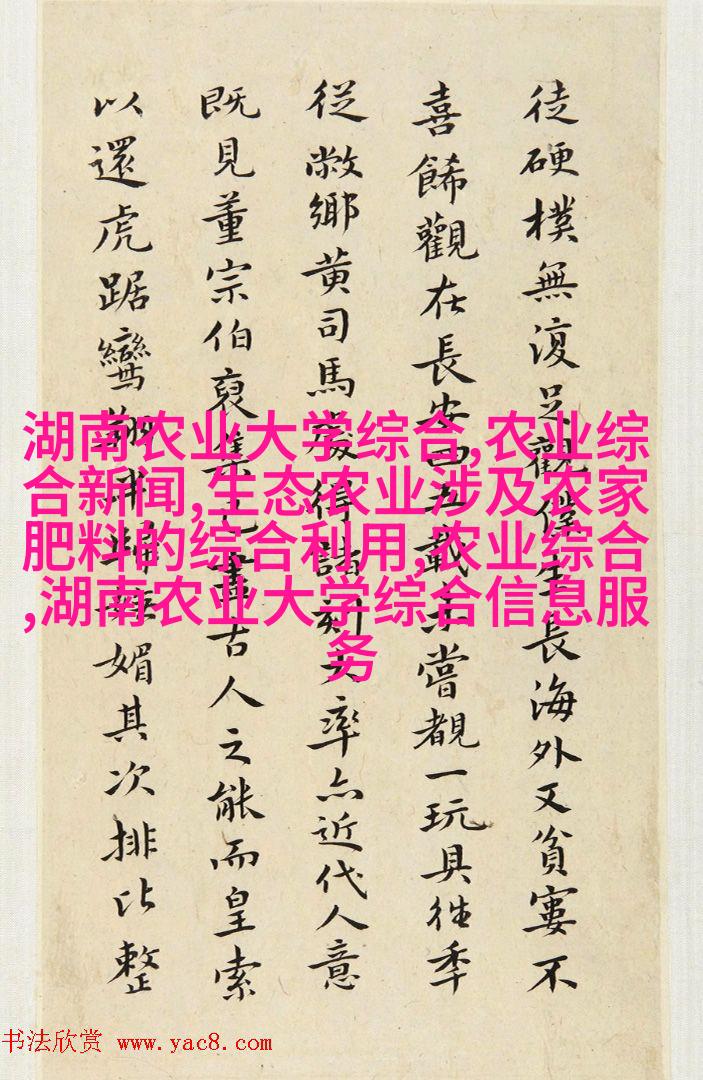 徒硬樸無復足觀僕生長海外又貧窶不
喜餙觀在長安四五載未嘗覩一玩具往秊
從敝鄉黄司馬處得諸刻大率亦近代人意
既見董宗伯裒集乃盡古人之能而皇索
以還虎踞鸞翔媚其次排比整
湖南农业大学综合,农业综
合新闻,生态农业涉及农家
肥料的综合利用,农业综合
,湖南农业大学综合信息服
务
书法欣赏 www.yac8.com